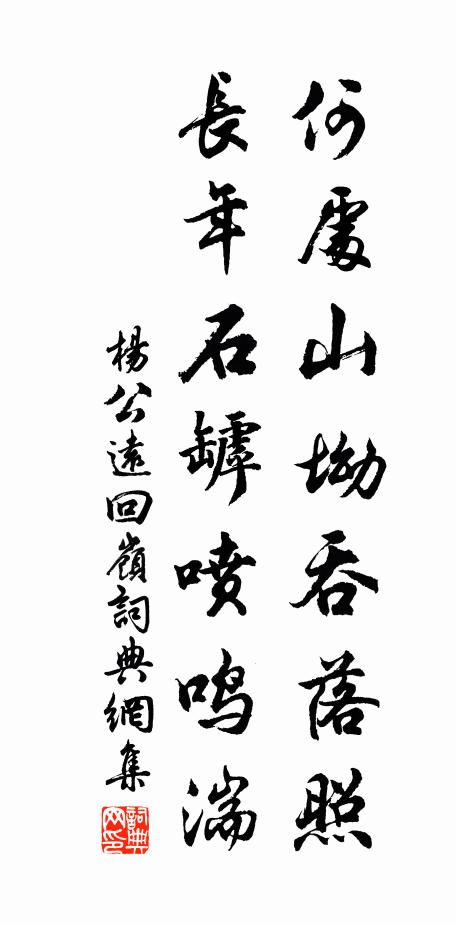 何處山坳吞落照
長年石罅噴鳴湍
楊公遠回嶺詞典網集
詞典網印